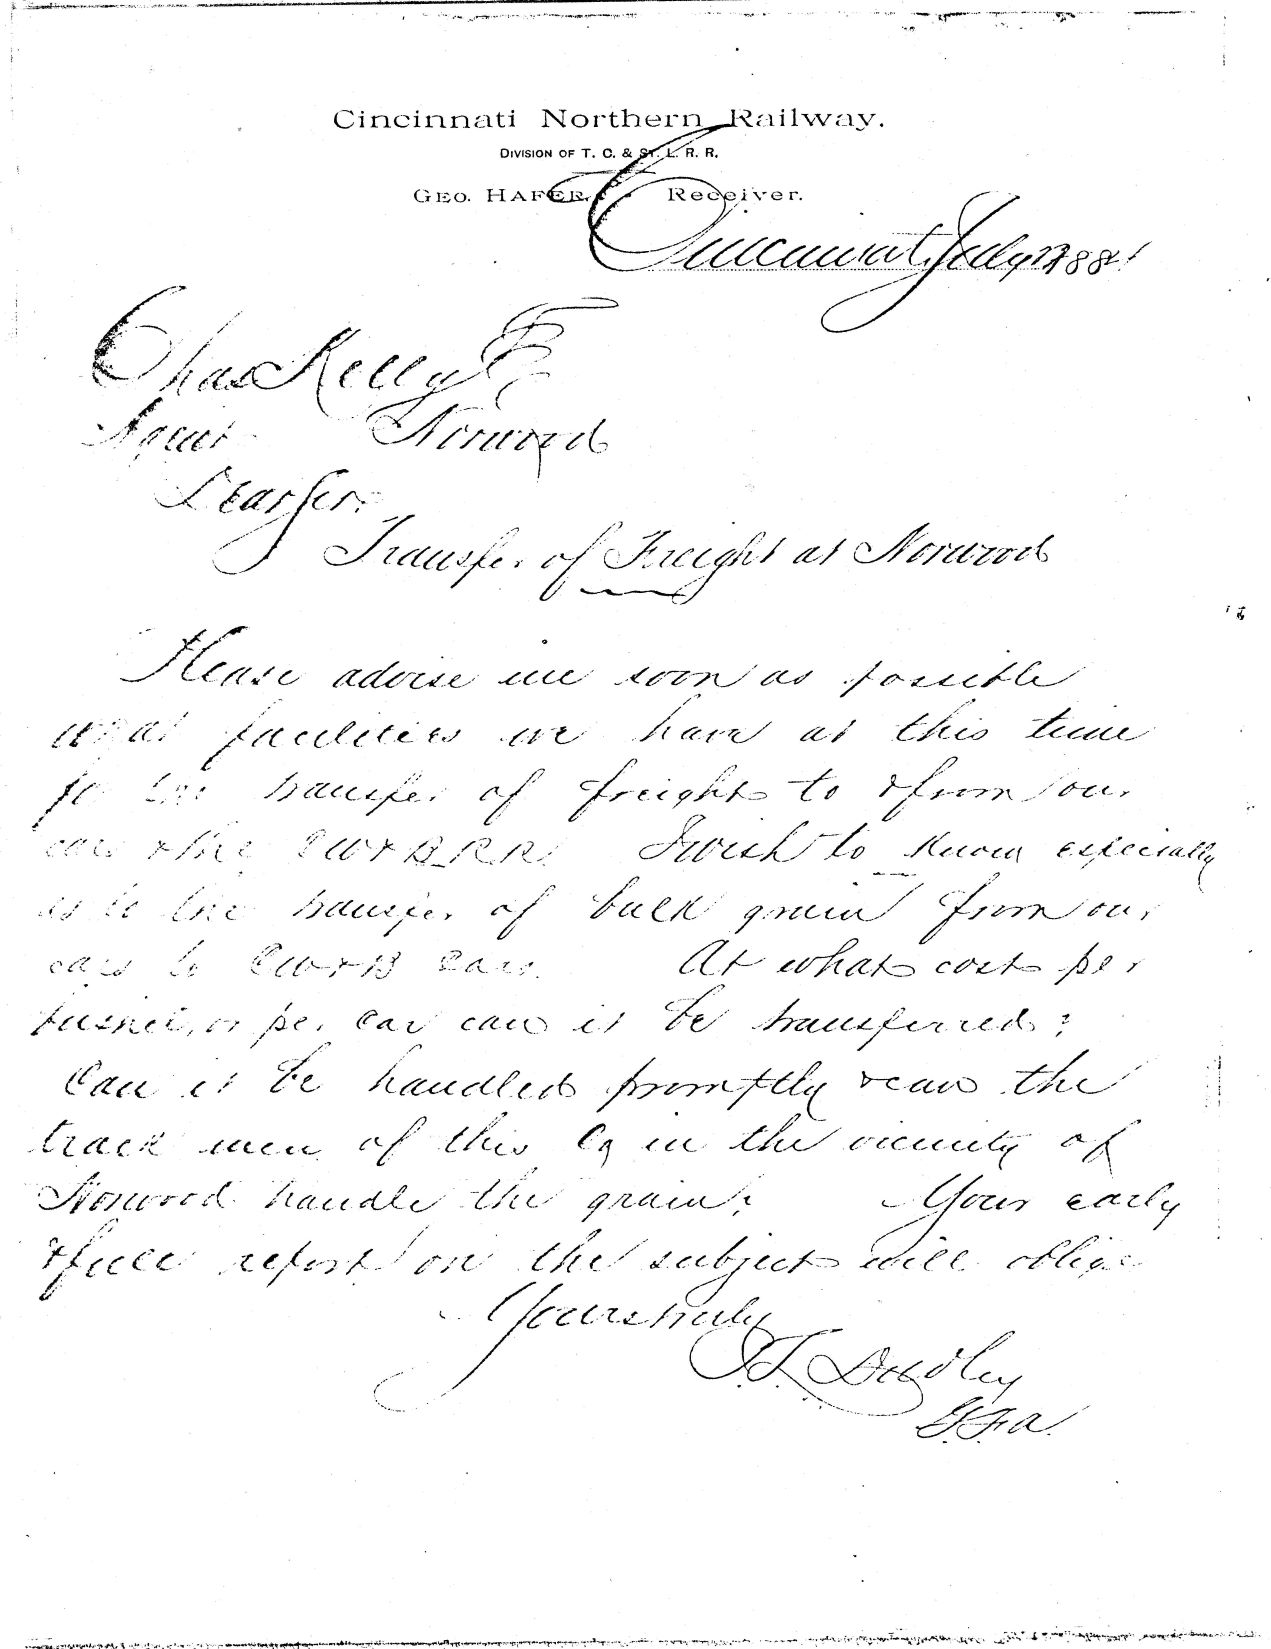 Cincinnati Northern Railway.
DIVISION OF T. C. & ST. L. R. R.
GEO. HAFER, Receiver.
Cincinnati July 188
Chas Kelly
Agent Norwood
Dear Sir:
Transfer of Freight at Norwood
Please advise me soon as possible
what facilities we have at this time
for the transfer of freight to & from our
cars & the C W & B R R. I wish to know especially
as to the transfer of bulk grain from our
cars to C W & B Cars. At what cost per
bushel, or per Car can it be transferred?
Can it be handled promptly & can the
track men of this Co in the vicinity of
Norwood handle the grain? Your early
& full report on the subject will oblige
Yours truly
Dudley
G.F.A.